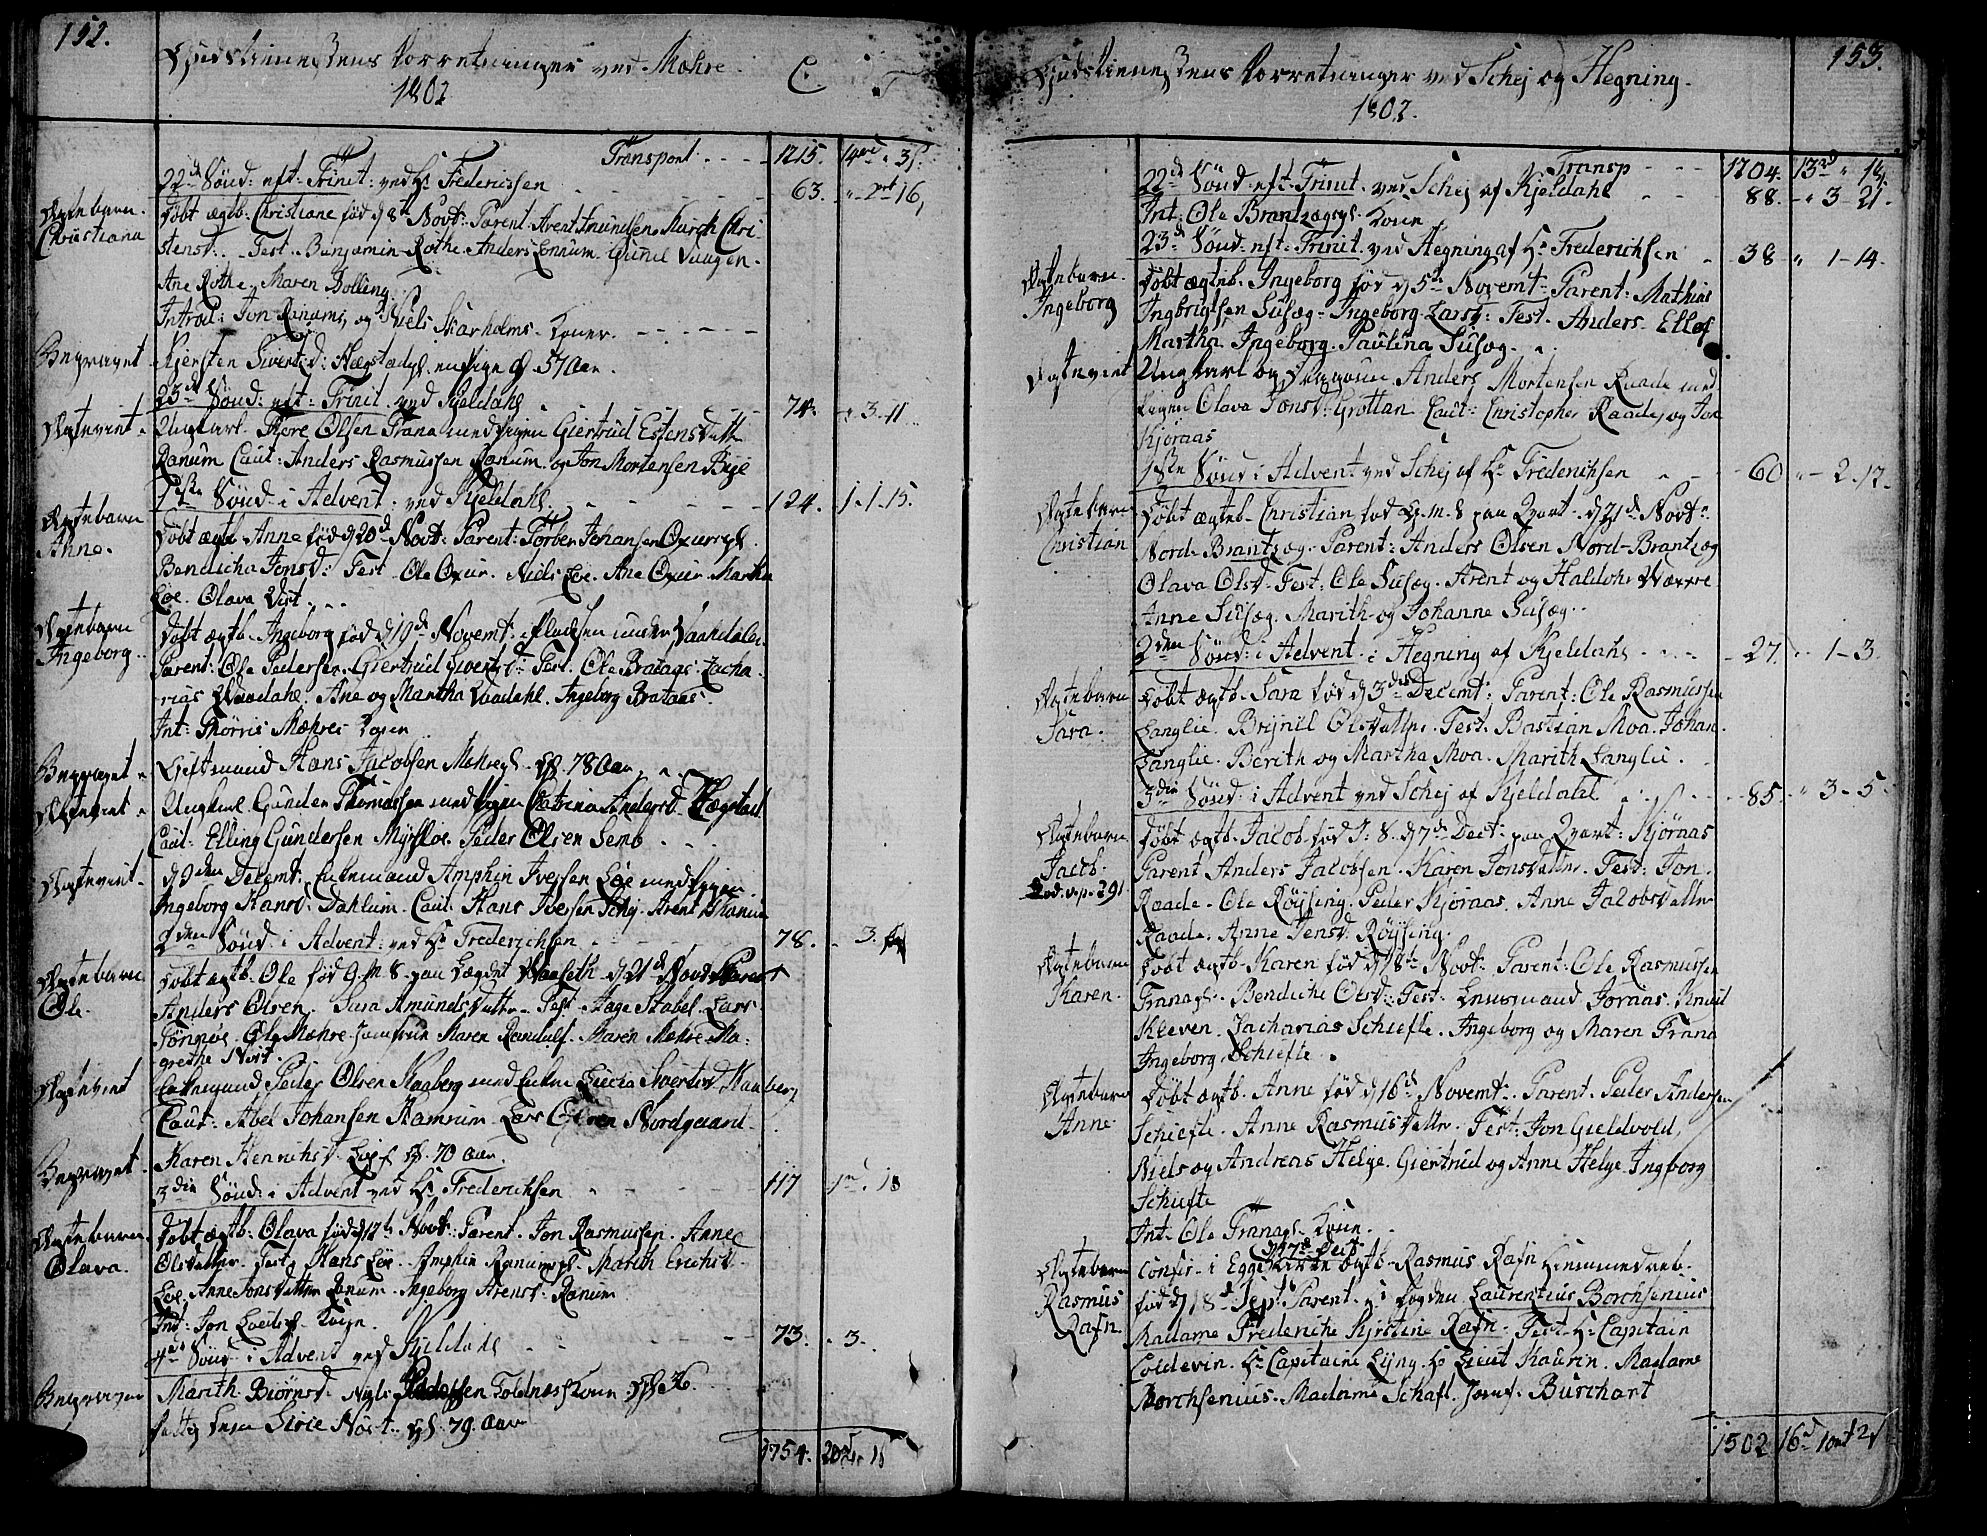 152.
Gudstienestens Forretninger ved Mæhre. C.
1802
Transport - - - 1215. 14 " 3
22de Sönd: eft: Trinit: ved Hr Frederichsen 63. " 2 ort 16
Ægtebarn Christiana
Döbt ægtb: Christiane föd d 8de Novt: Parent: Arent Amundsen. Chri
stensd: Test. Benjamin Rothe. Anders Lonnum. Gunil Vaagen.
Ane Rothe. Maren Dolling.
Introd: Jon Ranums og Niels Skarholms Koner.
Begravet Kiersten Sivertsd: 57 Aar.
23de Sönd: eft: Trinit. ved Kjeldahl 74. " 3. 11
Ægteviet Ungkarl Thore Olsen Frana med Pigen Giertrud Estensdatter
Ranum Caut: Anders Rasmussen Ranum og Jon Mortensen Bije
1ste Sönd: i Advent: ved Kjeldahl 124. 1. 1. 15.
Ægtebarn Anne.
Döbt ægtb. Anne föd d 20de Novt: Parent: Torber Johansen Oxur
Bendicha Jonsd: Test. Ole Oxur. Niels Löe. Ane Oxur. Martha
Löe. Olava Vist.
Ægtebarn Ingeborg.
Döbt ægtb. Ingeborg föd d 19de Novemt: i Pladsen under Vaadalen
Parent: Ole Pedersen. Giertrud Sivertsd: Test. Ole Brataas. Zacha
rias Vaadahl. Ane og Martha Vaadahl. Ingeborg Brataas.
Int: Thörris Mæhres Kone
Begravet Giftmand Hans Jacobsen Mæhre 78 Aar
Ægteviet Ungkarl Gunder Thomassen med Pigen Catrina Andersd. Hægstad
Caut: Elling Gundersen Myhrloe. Peder Olsen Semb
Ægteviet d 3den Decemt. Enkemand Amphin Iversen Löe med Pigen
Ingeborg Hansd. Dahlum. Caut. Hans Iversen Schej. Arent Ranum
2den Sönd: i Advent: ved Hr Frederichsen 78. " 3.
Ægtebarn Ole.
Döbt ægtb. Ole föd paa Lægdet d 21de Novt. Parent
Anders Olsen. Sara Amundsdatter. Test. Aage Stabel. Lars
Ole Mæhre. Jomfrue Karen Randulf. Maren Mæhre. Ma:
grethe Vist.
Ægteviet Enkemand Peder Olsen Kaaberg med Enken Lucia Sivertsd Kaaberg
Caut: Abel Johansen Hamrum. Lars Olsen Nordgaard.
Begravet Karen Henrichsd. 70 Aar.
3die Sönd: i Advent ved Hr Frederichsen 117 1 " 18
Ægtebarn Olava.
Döbt ægtb. Olava föd d 12te Novt. Parent. Jon Rasmussen. Anne
Olsdatter. Test. Hans Löe. Amphin Ranum. Marith Erichsd.
Löe, Anne Jonsdatter Ranum. Ingeborg Arensd. Ranum.
Int: Jon Kone.
4de Sönd: i Advent ved Kjeldahl 73. " 3.
Begraven Marith Biörnsd. Niels Kone 36
Fattig Enke Sirie Nöst. 79. Aar
1754. 20 " 18
153.
Gudstienestens Forretninger ved Schej og Hegning.
1802.
Transp - - - 1204. 13 " 14.
22de Sönd: eft. Trinit. ved Schej af Kjeldahl 88. " 3 - 21.
Int: Ole Brantzægs Kone
23de Sönd: eft: Trinit. ved Hegning af Hr Frederichsen 38 " 1 - 14.
Ægtebarn Ingeborg
Döbt ægteb. Ingeborg föd d 5te Novemt. Parent: Mathias
Ingbrigtsen Susæg. Ingeborg Larsd: Test. Anders. Ellef
Martha. Ingeborg. Paulina Susæg.
Ægteviet Ungkarl og Dragoun Anders Mortensen Raade med
Pigen Olava Jonsd: Grottan. Caut: Christopher Raade, og Jon
Kjöraas
1ste Sönd: i Advent ved Schej af Hr Frederichsen 60 " 2 - 17.
Ægtebarn Christian
Döbt ægteb. Christian föd paa Qvart. d 21de Novt:
Nord. Brantzæg. Parent: Anders Olsen Nord-Brantzæg
Olava Olsd. Test: Ole Susæg. Arent og Haldohr Værre
Anne Susæg. Marith og Johanne Susæg.
2den Sönd: i Advent i Hegning af Kjeldahl 27. " 1 - 3
Ægtebarn Sara.
Döbt ægtb. Sara föd d 3die Decemt: Parent: Ole Rasmussen
Langlie. Brynil Olsdatter. Test. Bastian Moa. Johan
Langlie. Berith og Martha Moa. Marith Langlie.
3die Sönd: i Advent ved Schej af Kjeldahl 85. " 3 - 5.
Ægtebarn Jacob.
Döbt ægtb. Jacob föd d 7de Dect: paa Qvart: Kjöraas
Parent Anders Jacobsen. Karen Jonsdatter. Test: Jon
Raade. Ole Röysing. Peder Kjöraas. Anne Jacobsdatter
Raade. Anne Jensd. Röysing.
Ægtebarn Karen.
Döbt ægtb. Karen föd d 18de Novt. Parent: Ole Rasmussen
Frana. Bendiche Olsd: Test. Lensmand Joraas. Knud
Kleven. Zacharias Schiefte. Ingeborg og Maren Frana
Ingeborg Schiefte.
Ægtebarn Anne
Döbt ægtb. Anne föd d 16de Novemt. Parent. Peder Andersen
Schiefte. Anne Rasmusdatter. Test. Jon Gieldvold,
Niels og Andreas Helge. Giertrud og Anne Helge. Ingborg
Schiefte
Int. Ole Frana Kone.
d 17de Sept
Ægtebarn Rasmus Rafn
Confir. i Egge Kirke ægtb. Rasmus Rafn hiemmedöbt
föd d 18de Sept. Parent. Hr Fogden Laurentius Borchsenius
Madame Frederiche Kirstine Rafn. Test. Hr Capitain
Coldevin. Hr Capitaine Lyng. Hr Lieut Kaurin. Madame
Borchsenius. Madame Schaft. Jomf. Burchart
1502 16 1 ort 21